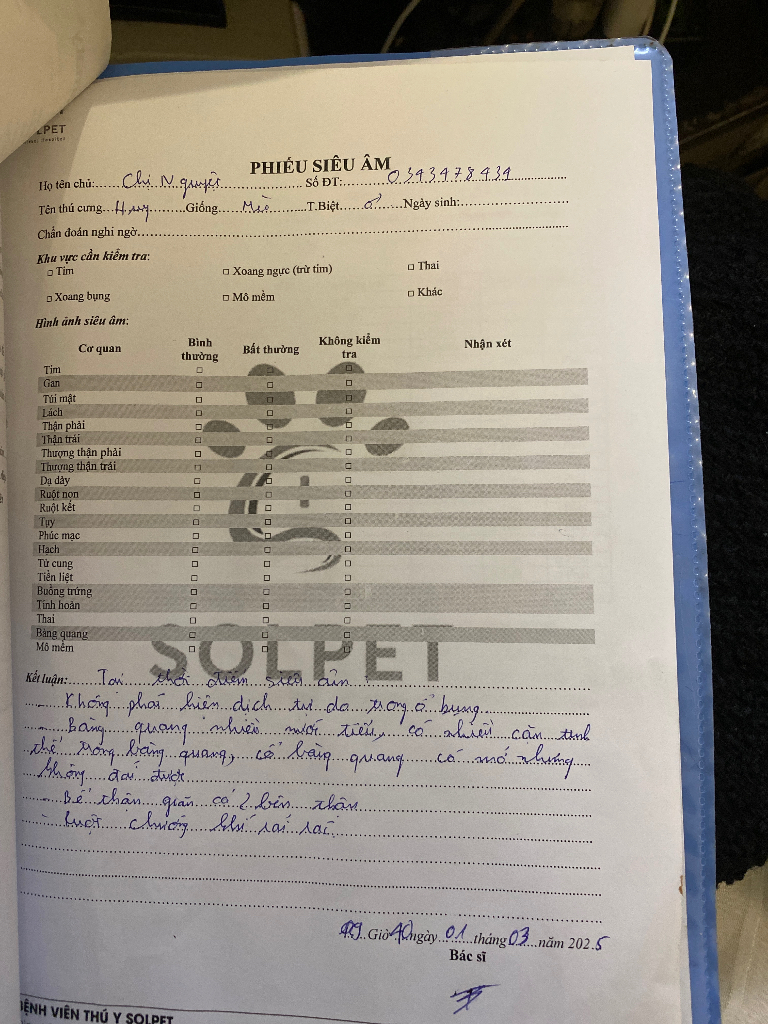 SOLPET
PHIẾU SIÊU ÂM
Họ tên chủ: Chị Nguyệt Số ĐT: 0343478434
Tên thú cưng Huy Giống Mèo T.Biệt ♂ Ngày sinh:
Chẩn đoán nghi ngờ
Khu vực cần kiểm tra:
□ Tim □ Xoang ngực (trừ tim) □ Thai
□ Xoang bụng □ Mô mềm □ Khác
Hình ảnh siêu âm:
Cơ quan Bình thường Bất thường Không kiểm tra Nhận xét
Tim □ □ □
Gan □ □ □
Túi mật □ □ □
Lách □ □ □
Thận phải □ □ □
Thận trái □ □ □
Thượng thận phải □ □ □
Thượng thận trái □ □ □
Dạ dày □ □ □
Ruột non □ □ □
Ruột kết □ □ □
Tụy □ □ □
Phúc mạc □ □ □
Hạch □ □ □
Tử cung □ □ □
Tiền liệt □ □ □
Buồng trứng □ □ □
Tinh hoàn □ □ □
Thai □ □ □
Bàng quang □ □ □
Mô mềm □ □ □
SOLPET
Kết luận: Tại thời điểm siêu âm :
- Không phát hiện dịch tự do trong ổ bụng
- Bàng quang nhiều nước tiểu, có nhiều cặn tinh
thể trong bàng quang, cổ bàng quang có mở nhưng
không đái được
- Bể thận giãn cả 2 bên thận
- Ruột chướng khí rải rác
09 Giờ 40 ngày 01 tháng 03 năm 2025
Bác sĩ
BỆNH VIỆN THÚ Y SOLPET